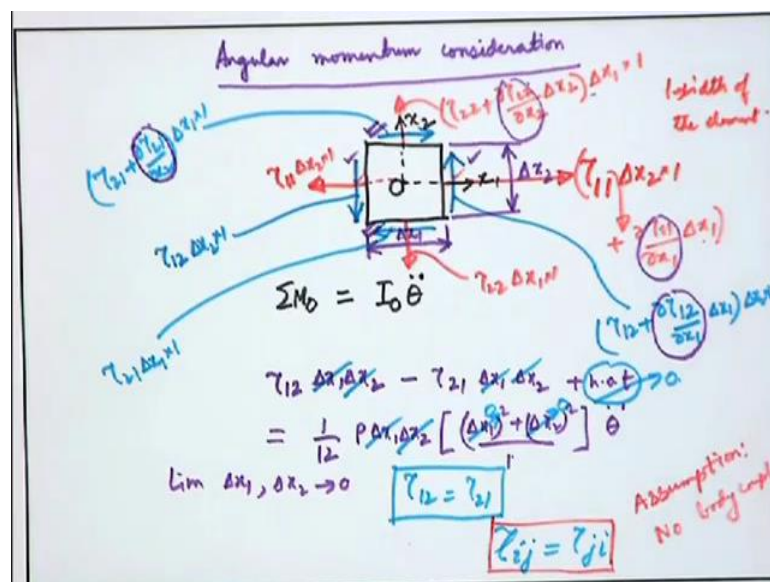 Angular momentum consideration
(τ22 + ∂τ22/∂x2 Δx2) Δx1*1
1 → width of
the element.
(τ21 + ∂τ21/∂x2 Δx1*1
x2
τ11 Δx2*1
O
x1
Δx2
(τ11) Δx2*1
+ ∂τ11/∂x1 Δx1)
τ12 Δx2*1
Δx1
τ22 Δx1*1
ΣM0 = I0 θ̈
(τ12 + ∂τ12/∂x1 Δx1) Δx2
τ21 Δx1*1
τ12 Δx1 Δx2 − τ21 Δx1 Δx2 + h.o.t → 0
= 1/12 ρ Δx1 Δx2 [(Δx1)² + (Δx2)²] θ̈
Lim Δx1, Δx2 → 0
τ12 = τ21
Assumption:
No body
τij = τji